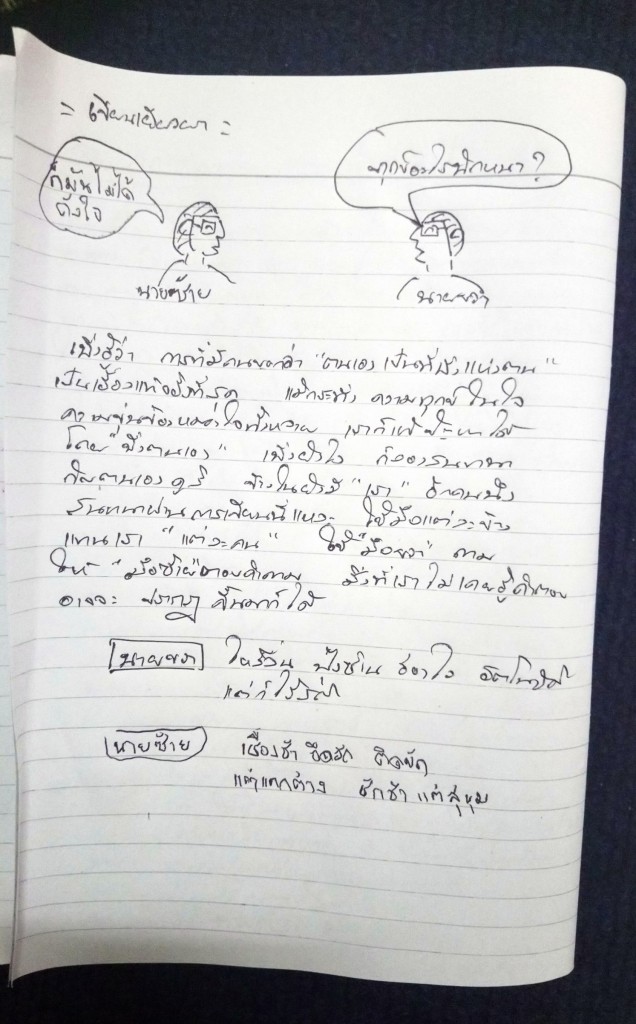 = เขียนเยียวยา =
ก็มันไม่ได้
ดังใจ
ทุกข้องใจนักหนา?
นายซ้าย
นายขวา
เพิ่งรู้ว่า การที่มีคนบอกว่า "ตนเองเป็นที่พึ่งแห่งตน"
เป็นเรื่องแท้จริงที่สุด แม้กระทั่ง ความทุกข์ในใจ
ความขุ่นข้องหมองใจทั้งหลาย เราก็แก้ปัญหาได้
โดย "พึ่งตนเอง" เพียง ก็ลองสนทนา
กับตนเองดูสิ ข้างในยังมี "เรา" อีกคนนึง
สนทนาผ่านการเขียนนี่แหละ ใช้มือแต่ละข้าง
แทนเรา "แต่ละคน" ใช้ "มือขวา" ถาม
ให้ "มือซ้าย" ตอบคำถาม สิ่งที่เราไม่เคยรู้คำตอบ
อาจจะ ปรากฏ ขึ้นมาก็ได้
นายขวา ใจร้อน อัตโนมัติ
แต่ก็
นายซ้าย เชื่องช้า ยืดยาด ติดขัด
แต่แตกต่าง ชักช้า แต่สุขุม